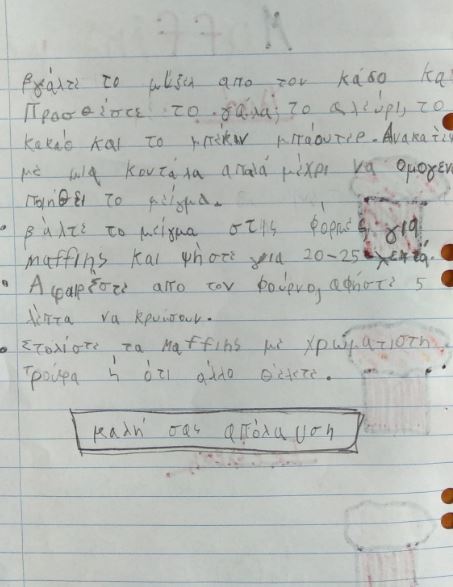 βγάλτε το μίξερ απο τον κάδο και
Προσθέστε το γάλα, το αλεύρι, το
κακάο και το μπέκιν μπάουτερ. Ανακατέ
με μια κουτάλα απαλά μέχρι να ομογεν
ποιηθεί το μείγμα.
βάλτε το μείγμα στης φόρμες για
maffins και ψήστε για 20-25 λεπτά.
Αφαιρέστε απο τον φούρνο, αφήστε 5
λεπτα να κρυώσουν.
Στολίστε τα Maffins με χρωματιστη
τρούφα ή ότι άλλο θέλετε.
καλή σας απόλαυση